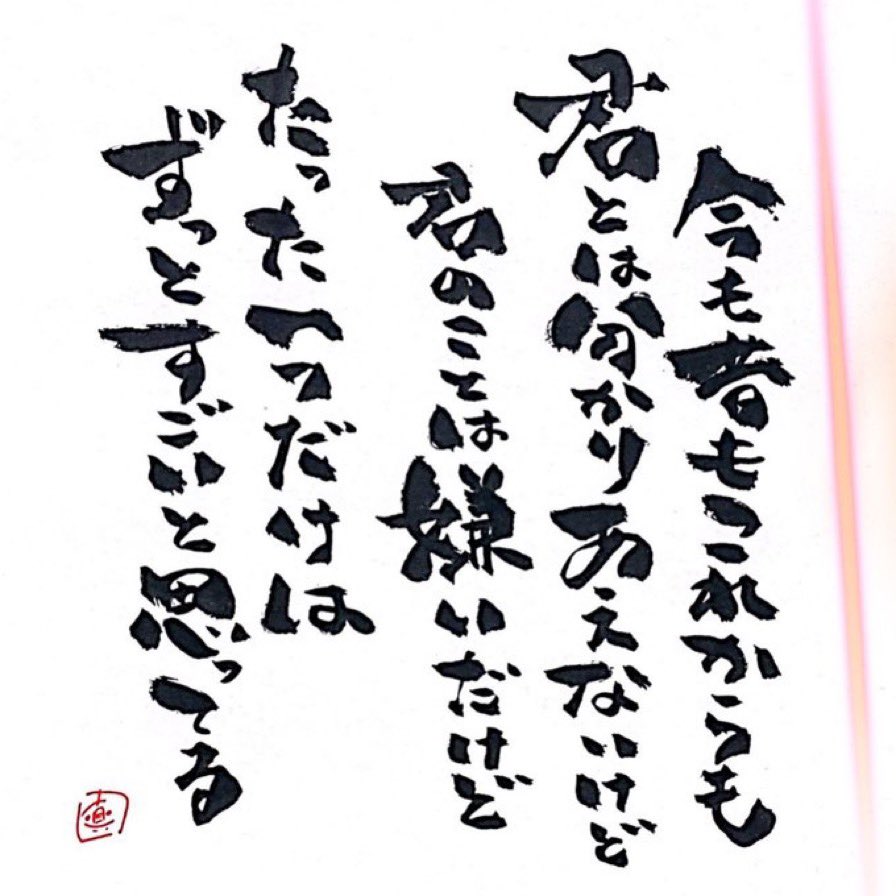 今も昔もこれからも
君とは分かりあえないけど
君のことは嫌いだけど
たった一つだけは
ずっとすごいと思ってる